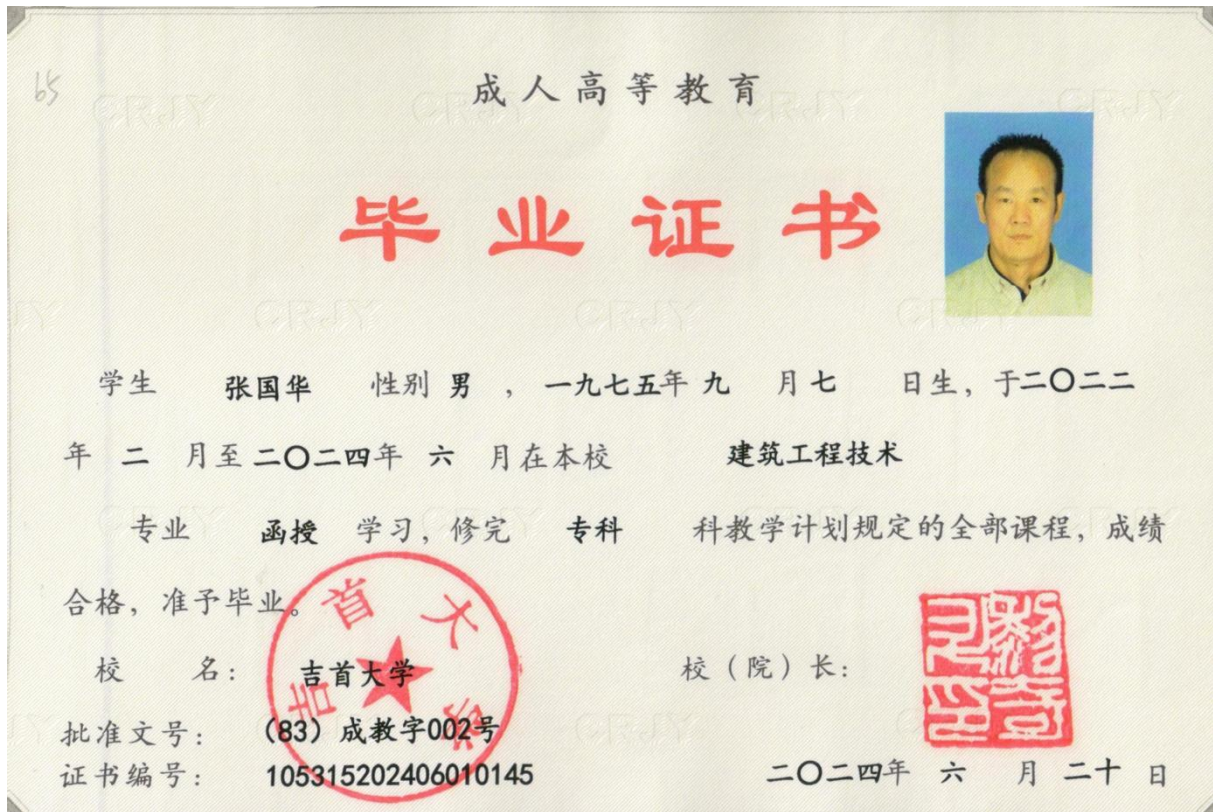 65
成人高等教育
毕业证书
学生 张国华 性别 男 ，一九七五年 九 月 七 日生，于二〇二二
年 二 月至 二〇二四年 六 月在本校 建筑工程技术
专业 函授 学习，修完 专科 科教学计划规定的全部课程，成绩
合格，准予毕业。
校 名： 吉首大学
校（院）长：
批准文号： （83）成教字002号
证书编号： 105315202406010145
二〇二四年 六 月 二十 日
吉首大学
CRJY